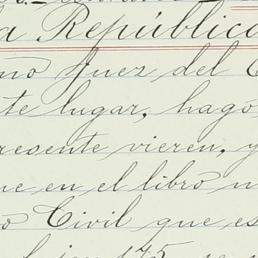 a República
mo Juez del C
te lugar, hago
resente vieren, y
ue en el libro n
o Civil que es